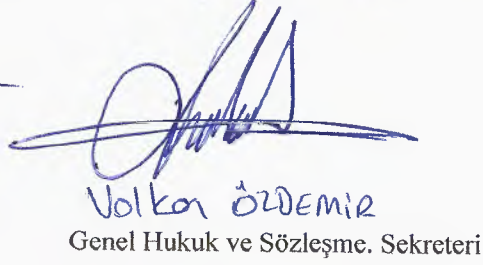 Volkan ÖZDEMİR
Genel Hukuk ve Sözleşme. Sekreteri